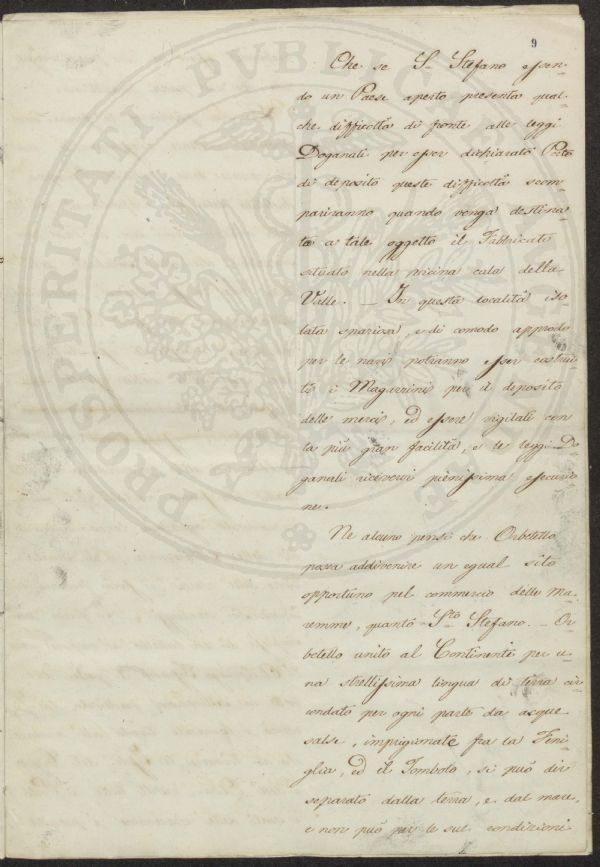 9
Che se S. Stefano essen-
do un Paese aperto presenta qual-
che difficoltà di fronte alle leggi
Doganali per esser dichiarato Porto
di deposito queste difficoltà scom-
pariranno quando venga destina-
to a tale oggetto il Fabbricato
situato nella vicina cala della
Valle. _ In questa località iso-
lata spaziosa, e di comodo approdo
per le navi potranno esser costrui
ti i Magazzini per il deposito
delle merci, ed essere vigilati con
la più gran facilità, e le leggi Do
ganali ricevervi pienissima esecuzio
ne.
Nè alcuno pensi che Orbetello
possa addivenire un egual sito
opportuno pel commercio delle Ma-
remme, quanto Sto Stefano. _ Or
betello unito al Continente per u-
na strettissima lingua di terra cir
condato per ogni parte da acque
salse, imprigionate fra la Feni-
glia, ed il Tombolo, si può dir
separato dalla terra, e dal mare,
e non può per le sue condizioni
PROSPERITATI PUBLICAE